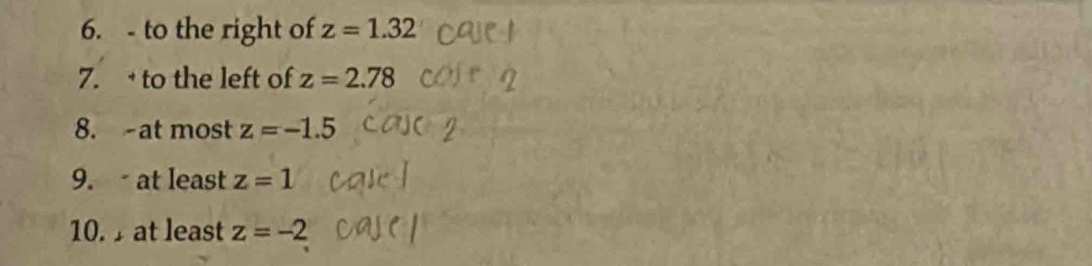 6. - to the right of z = 1.32 case 1
7. + to the left of z = 2.78 case 2
8. - at most z = -1.5 case 2
9. - at least z = 1 case 1
10. at least z = -2 case 1